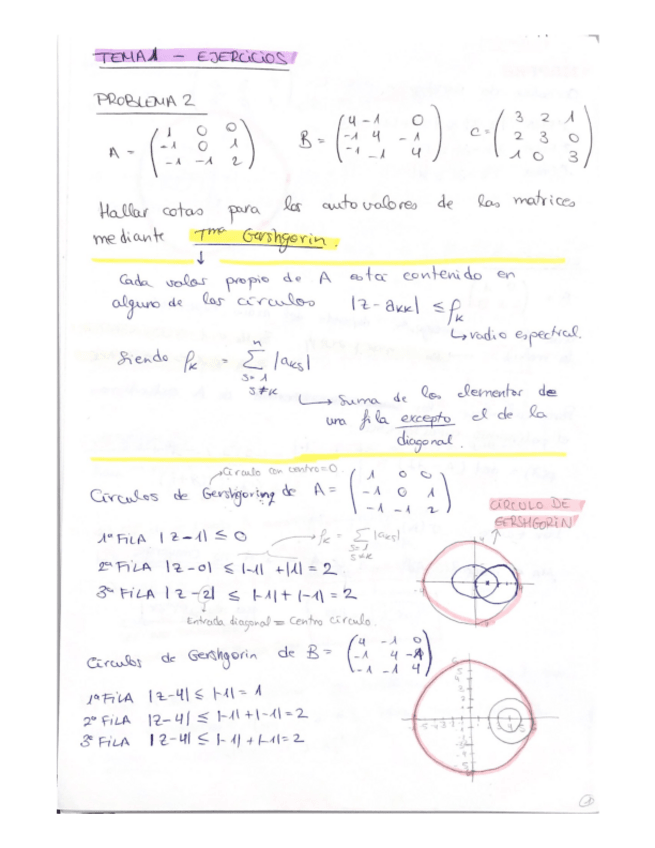 TEMA 1 - EJERCICIOS
PROBLEMA 2
A = ( 1 0 0 ; -1 0 1 ; -1 -1 2 ) B = ( 4 -1 0 ; -1 4 -1 ; -1 -1 4 ) C = ( 3 2 1 ; 2 3 0 ; 1 0 3 )
Hallar cotas para los autovalores de las matrices
mediante Tma Gershgorin.
↓
Cada valor propio de A está contenido en
alguno de los círculos |z - aKK| ≤ ρK
↳ radio espectral.
Siendo ρK = Σ |aKS|
n
S=1
S≠K
↳ Suma de los elementos de
una fila excepto el de la
diagonal.
Círculo con centro=0.
Círculos de Gershgoring de A = ( 1 0 0 ; -1 0 1 ; -1 -1 2 )
CÍRCULO DE
GERSHGORIN
1ª FILA |z-1| ≤ 0
ρK = Σ |aKS|
S=1
S≠K
2ª FILA |z-0| ≤ |-1| + |1| = 2
3ª FILA |z-2| ≤ |-1| + |-1| = 2
Entrada diagonal = Centro círculo.
Círculos de Gershgorin de B = ( 4 -1 0 ; -1 4 -1 ; -1 -1 4 )
1ª FILA |z-4| ≤ |-1| = 1
2ª FILA |z-4| ≤ |-1| + |-1| = 2
3ª FILA |z-4| ≤ |-1| + |-1| = 2